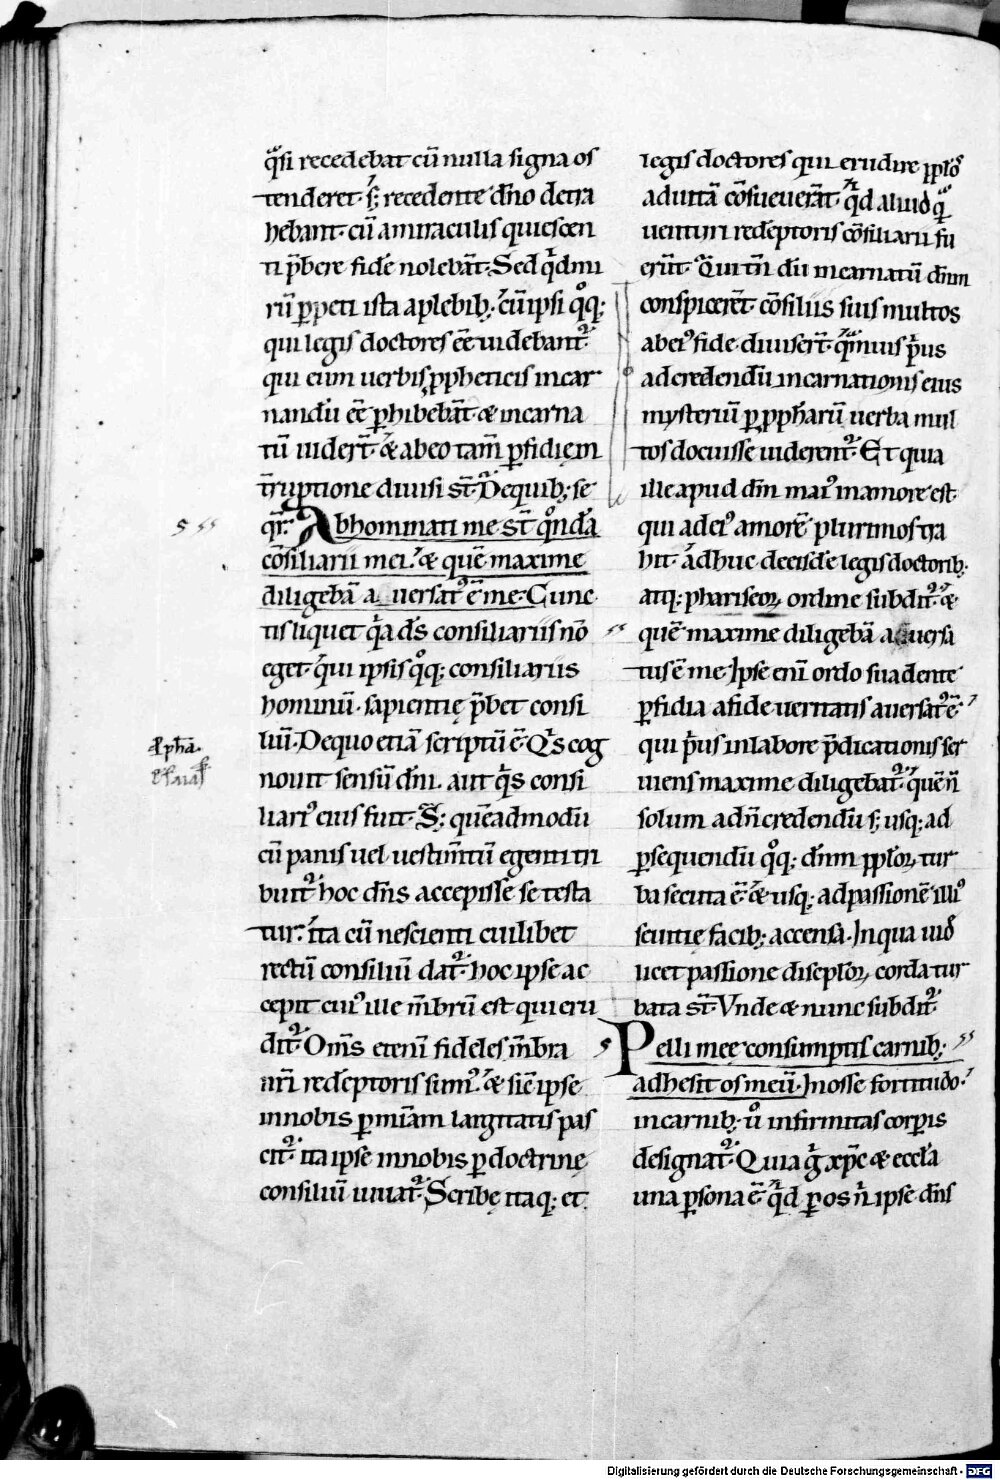 q̄si recedebat cū nulla signa os
tenderet. s; recedente dn̄o detra
hebant. cū a miraculis quiescen
ti p̄bere fidē nolebāt. Sed q̄d mi
rū ꝑpeti ista a plebib;. cū ipsi qͦq;
qui legis doctores eē uidebant᷑
qui eum uerbis ꝓpheticis incar
nandū eē ꝑhibebāt. & incarna
tū uider̄t. & ab eo tam̄ ꝑfidięm
t̄ruptione diuisi st̄. De quib; se
qr̄. Abhominati me st̄ qͦndā
cōsiliarii mei. & quē maxime
diligebā a uersat᷒ ē me. Cunc
tis liquet q̄a ds̄ consiliariis nō
eget. qui ipsis qͦq; consiliariis
hominū. sapientię p̄bet consi
liū. De quo etiā scriptū ē. Qis cog
nouit sensū dn̄i. aut qis consi
liari᷒ eius fuit. S; quēadmodū
cū panis uel uestim̄tū egenti tri
buit᷑. hoc dn̄s accepisse se testa
tur. ita cū nescienti cuilibet
rectū consiliū dat᷑. hoc ipse ac
cepit cui᷒ ille m̄brū est qui eru
dit᷑. Om̄s etenī fideles m̄bra
nr̄i redēptoris sim᷒. & sic̄ ipse
in nobis ꝑ miām largitatis pas
cit᷑. ita ipse in nobis ꝑ doctrinę
consiliū iuuat᷑. Scribę itaq; et
s
ap̄phā.
esaias
legis doctores qui erudire ppło᷒
ad uitā cōsueuerāt. q̄d aliud qͣ
uenturi redēptoris cōsiliarii fu
erūt. Qui tn̄ dū incarnatū dn̄m
conspicerēt. cōsiliis suis multos
ab ei᷒ fide diuiser̄t. qͣmuis p̄us
ad credendū incarnationis eius
mysteriū ꝑ ꝓphārū uerba mul
tos docuisse uiderent᷑. Et quia
ille apud dn̄m mai᷒ in amore est.
qui ad ei᷒ amorē plurimos tra
hit. adhuc de eisdē legis doctorib;
atq; phariseoꝝ ordine subdit᷑. &
quē maxime diligebā auersa
tus ē me. Ipse enī ordo suadente
ꝑfidia a fide ueritatis auersat᷒ ē.
qui p̄us in labore p̄dicationis ser
uiens maxime diligebat᷑. quē ñ
solum ad ñ credendū s; usq; ad
ꝑsequendū qͦq; dn̄m ppłoꝝ tur
ba secuta ē. & usq; ad passionē illi᷒
seuitię facib; accensa. In qua uid
licet passione discipłoꝝ corda tur
bata st̄. Vnde & nunc subdit᷑.
Pelli meę consumptis carnib;.
adhesit os meū. In osse fortitudo.
in carnib;. ů infirmitas corꝑis
designat᷑. Quia ḡ xp̄c & eccłā
una ꝑsona ē. q̄d ꝑ os ñ ipse dn̄s